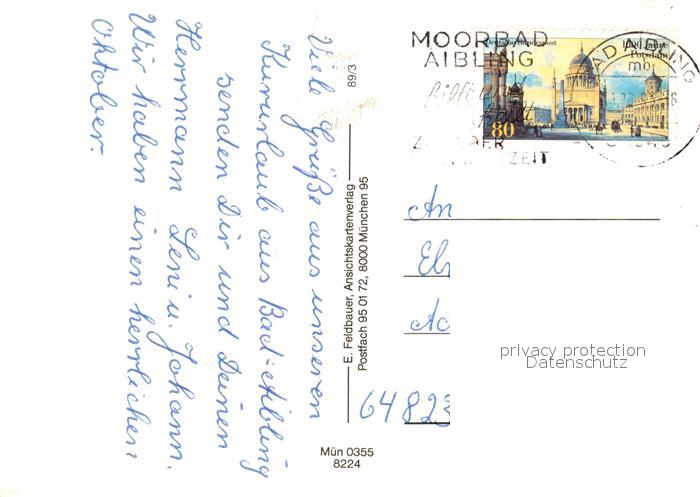 Viele Grüße aus unseren
Kururlaub aus Bad-Aibling
senden Dir und Deinen
Herrmann Leni u. Johann.
Wir haben einen herrlichen
Oktober.
89/3
E. Feldbauer, Ansichtskartenverlag
Postfach 95 01 72, 8000 München 95
Mün 0355
8224
MOORBAD
AIBLING
hilft
ZEIT
Deutsche Bundespost
1000 Jahre
Potsdam
80
An
64823
privacy protection
Datenschutz